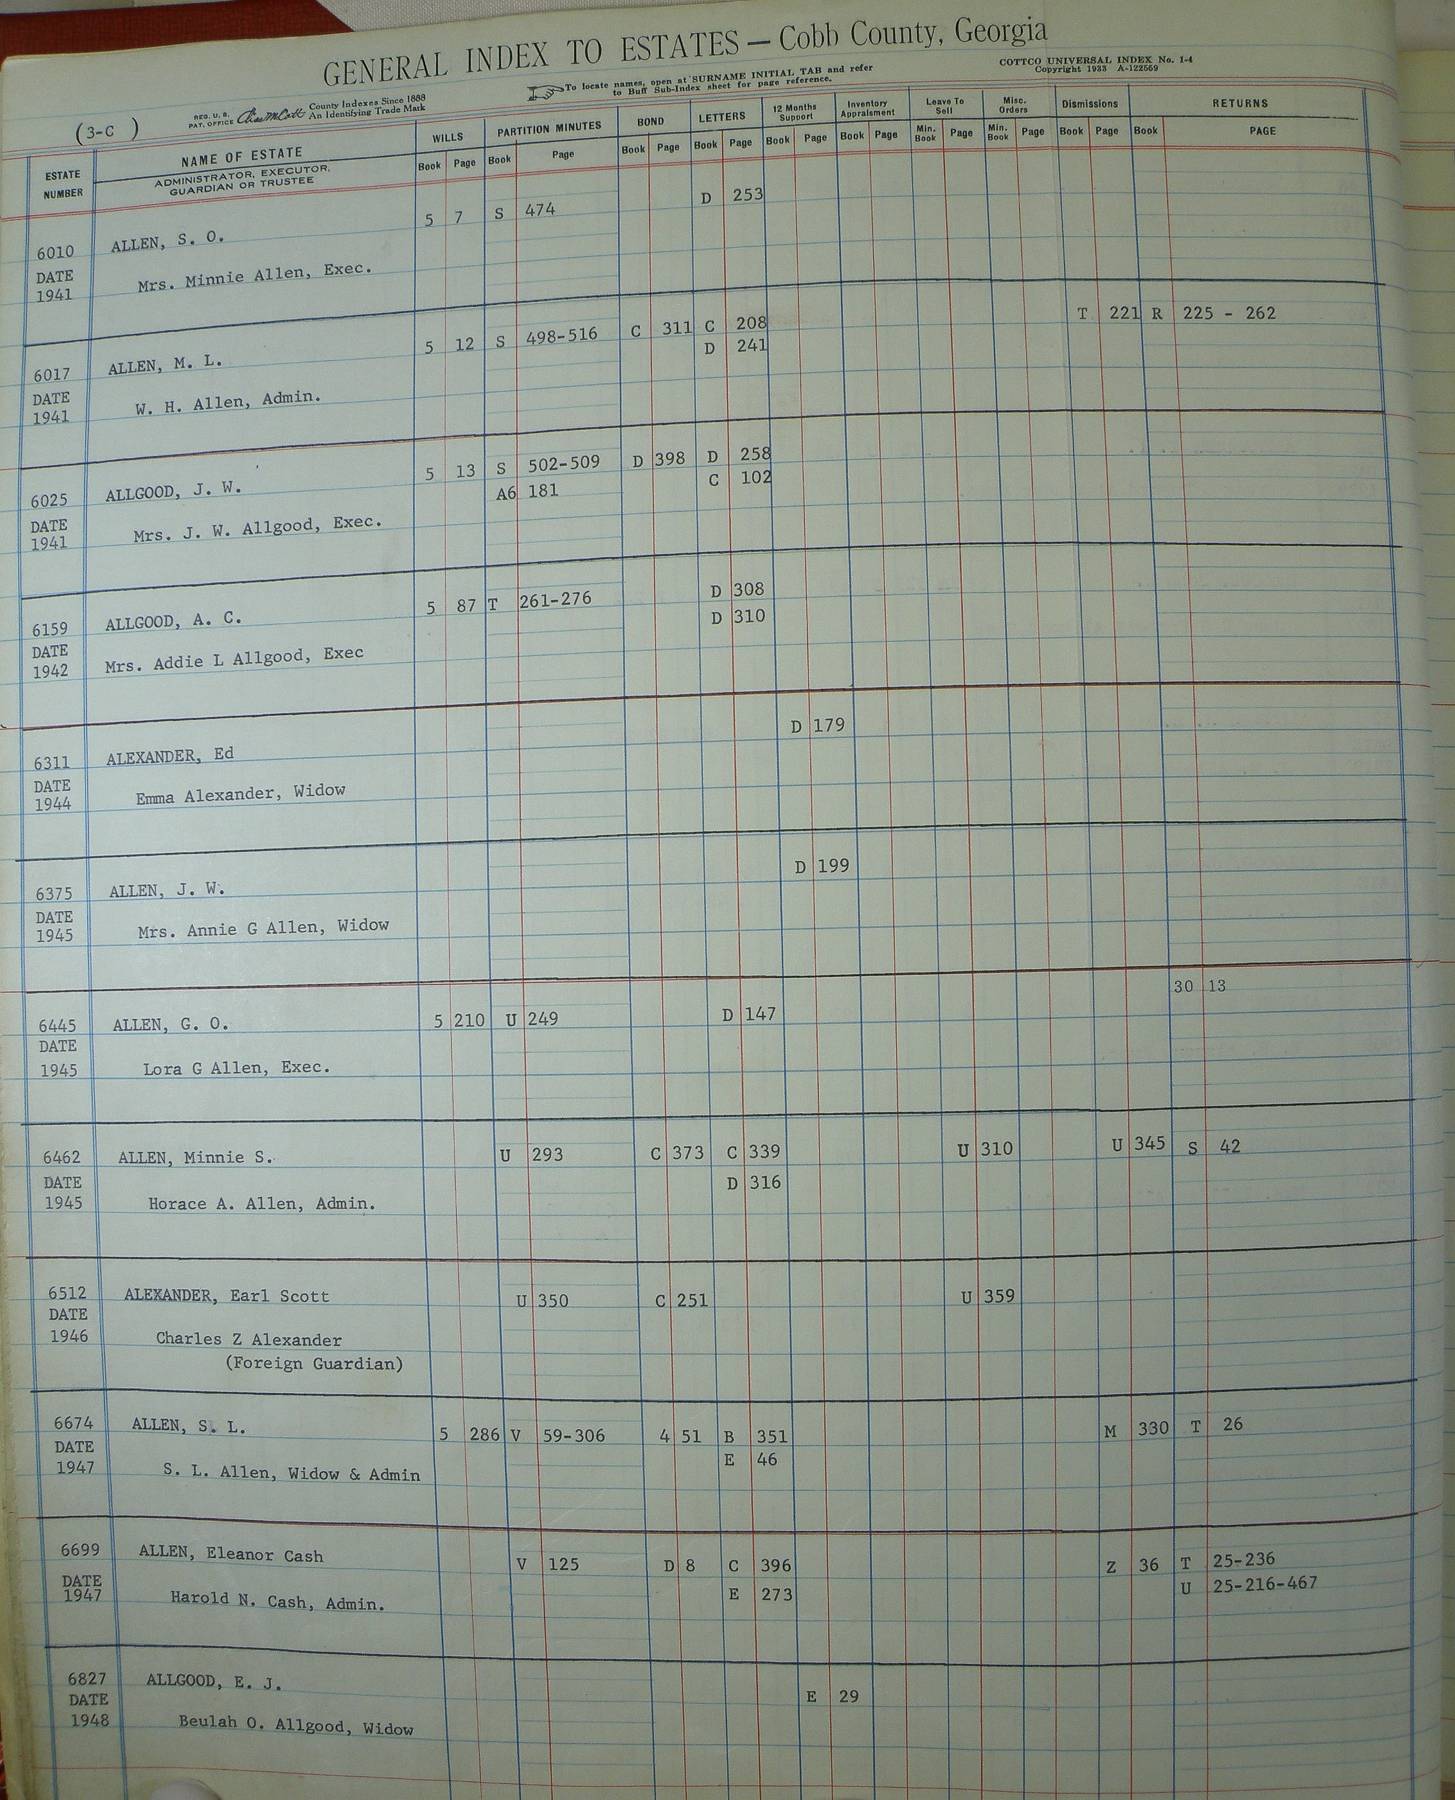 GENERAL INDEX TO ESTATES — Cobb County, Georgia
(3-C )
REG. U. S. PAT. OFFICE County Indexes Since 1888 An Identifying Trade Mark
To locate names, open at SURNAME INITIAL TAB and refer to Buff Sub-Index sheet for page reference.
COTTCO UNIVERSAL INDEX No. 1-4
Copyright 1933 A-122569
ESTATE NUMBER
NAME OF ESTATE
ADMINISTRATOR, EXECUTOR, GUARDIAN OR TRUSTEE
WILLS PARTITION MINUTES BOND LETTERS 12 Months Support Inventory Appraisment Leave To Sell Misc. Orders Dismissions RETURNS
Book Page Book Page Book Page Book Page Book Page Book Page Min. Book Page Min. Book Page Book Page Book PAGE
6010 ALLEN, S. O. 5 7 S 474 D 253
DATE
1941 Mrs. Minnie Allen, Exec.
6017 ALLEN, M. L. 5 12 S 498-516 C 311 C 208 T 221 R 225 - 262
D 241
DATE
1941 W. H. Allen, Admin.
6025 ALLGOOD, J. W. 5 13 S 502-509 D 398 D 258
A6 181 C 102
DATE
1941 Mrs. J. W. Allgood, Exec.
6159 ALLGOOD, A. C. 5 87 T 261-276 D 308
D 310
DATE
1942 Mrs. Addie L Allgood, Exec
6311 ALEXANDER, Ed D 179
DATE
1944 Emma Alexander, Widow
6375 ALLEN, J. W. D 199
DATE
1945 Mrs. Annie G Allen, Widow
30 13
6445 ALLEN, G. O. 5 210 U 249 D 147
DATE
1945 Lora G Allen, Exec.
6462 ALLEN, Minnie S. U 293 C 373 C 339 U 310 U 345 S 42
DATE D 316
1945 Horace A. Allen, Admin.
6512 ALEXANDER, Earl Scott U 350 C 251 U 359
DATE
1946 Charles Z Alexander
(Foreign Guardian)
6674 ALLEN, S. L. 5 286 V 59-306 4 51 B 351 M 330 T 26
DATE E 46
1947 S. L. Allen, Widow & Admin
6699 ALLEN, Eleanor Cash V 125 D 8 C 396 Z 36 T 25-236
DATE E 273 U 25-216-467
1947 Harold N. Cash, Admin.
6827 ALLGOOD, E. J. E 29
DATE
1948 Beulah O. Allgood, Widow